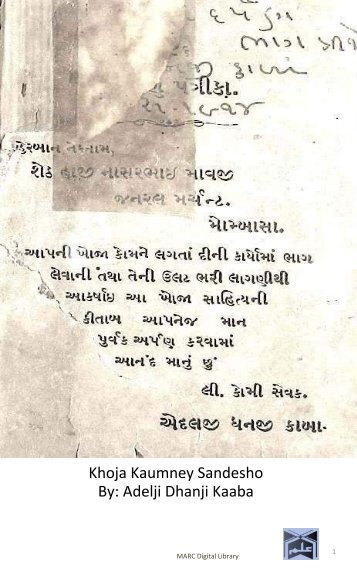 ૬ ૫
ભાગ
કાબા
પત્રીકા.
મહેરબાન નેકનામ,
શેઠ હાજી નાસરભાઇ માવજી
જનરલ મર્ચન્ટ.
મોમ્બાસા.
આપની ખોજા કોમને લગતાં દીની કાર્યોમાં ભાગ
લેવાની તથા તેની ઉલટ ભરી લાગણીથી
આકર્ષાઇ આ ખોજા સાહિત્યની
કીતાબ આપનેજ માન
પુર્વક અર્પણ કરવામાં
આનંદ માનું છું
લી. કોમી સેવક.
એદલજી ધનજી કાબા.
Khoja Kaumney Sandesho
By: Adelji Dhanji Kaaba
MARC Digital Library
علم
1